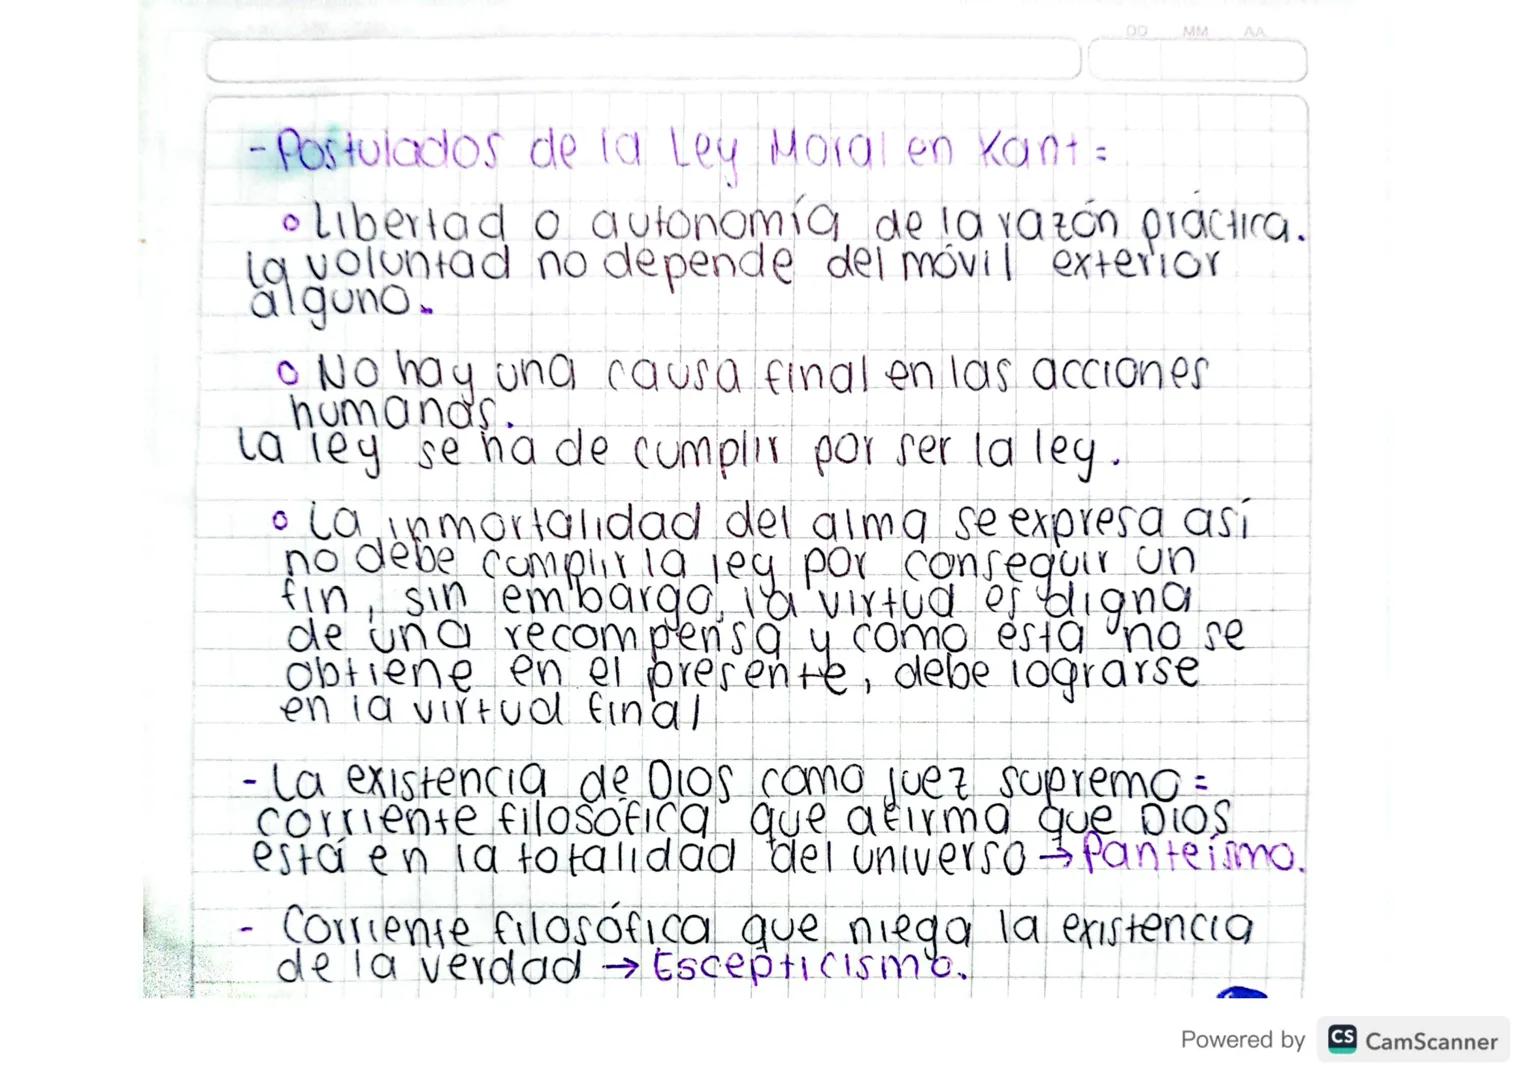 DD MM AA
- Postulados de la Ley Moral en Kant:
o Libertad o autonomía de la razón práctica.
la voluntad no depende del móvil exterior
alguno.
o No hay una causa final en las acciones
humanas.
La ley se ha de cumplir por ser la ley.
o La inmortalidad del alma se expresa así
no debe cumplir la ley por conseguir un
fin, sin embargo, la virtud es digna
de una recompensa y como esta no se
obtiene en el presente, debe lograrse
en la virtud final
- La existencia de Dios como juez supremo:
corriente filosófica que afirma que Dios
está en la totalidad del universo → Panteísmo.
- Corriente filosófica que niega la existencia
de la verdad → Escepticismo.
Powered by CS CamScanner